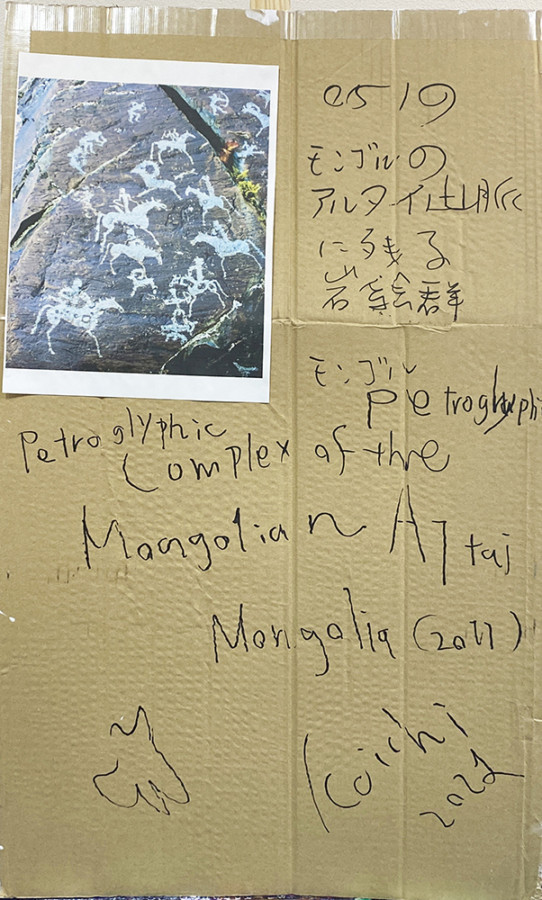 0519
モンゴルの
アルタイ山脈
に残る
岩絵群
モンゴル
Petroglyphi
Petroglyphic
Complex of the
Moongolian Altai
Mongolia (2011)
Koichi
2022